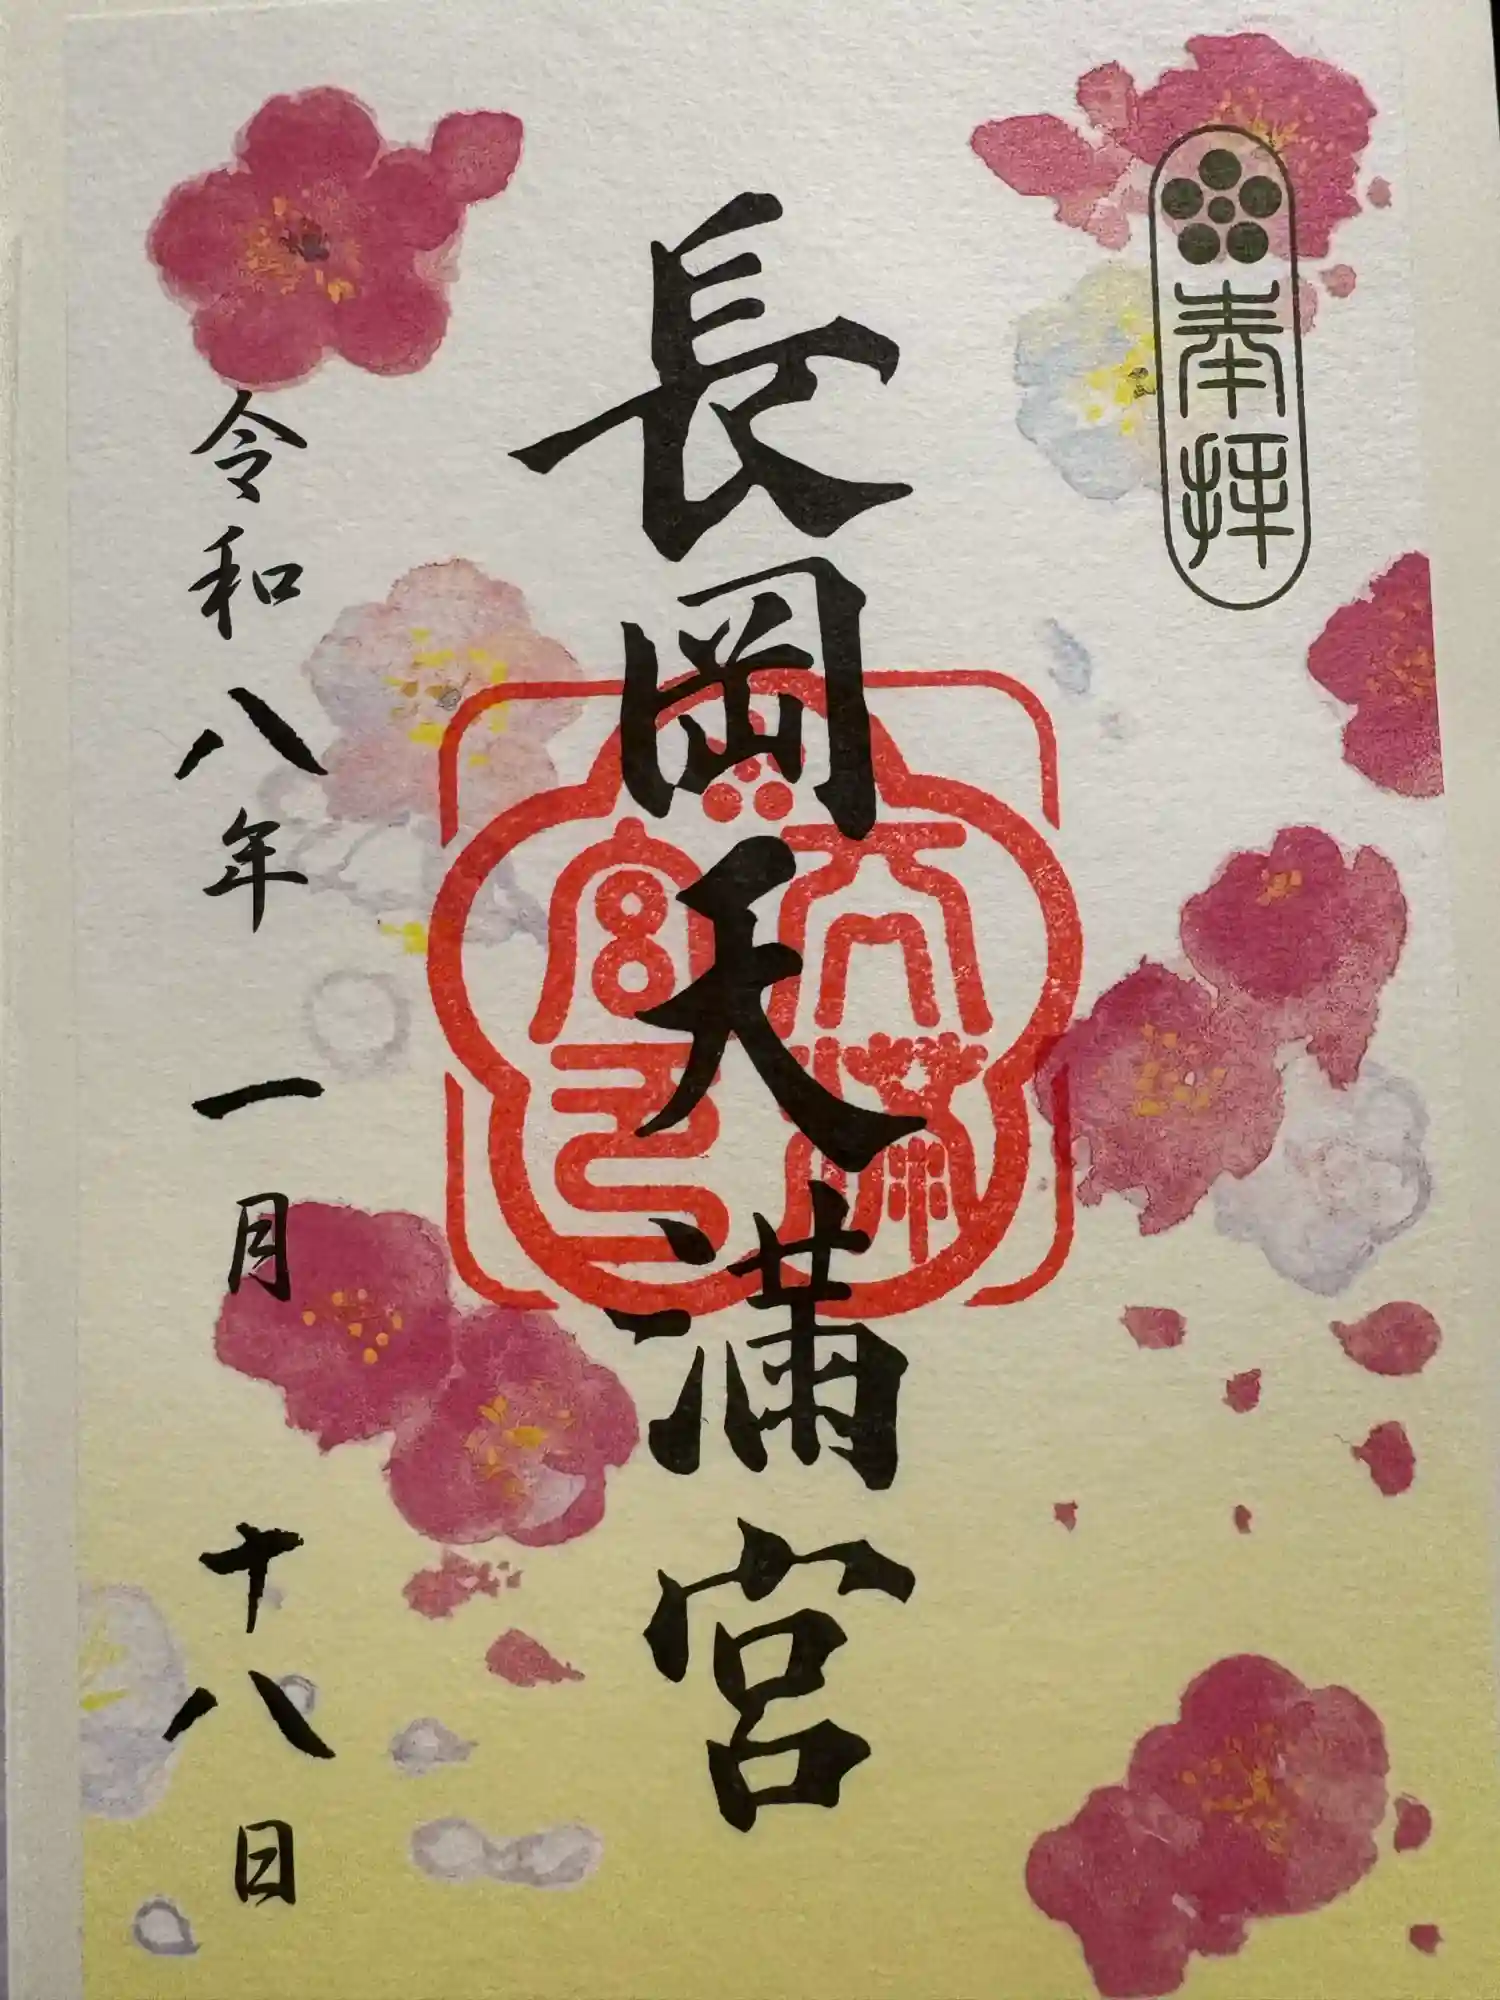 奉拝
長岡天満宮
天満宮印
令和八年一月十八日